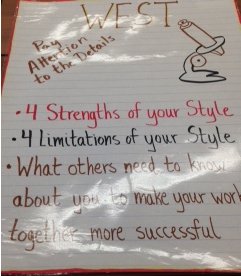 WEST
Pay
Attention
to the Details
• 4 Strengths of your Style
• 4 Limitations of your Style
• What others need to know
about you to make your work
together more successful